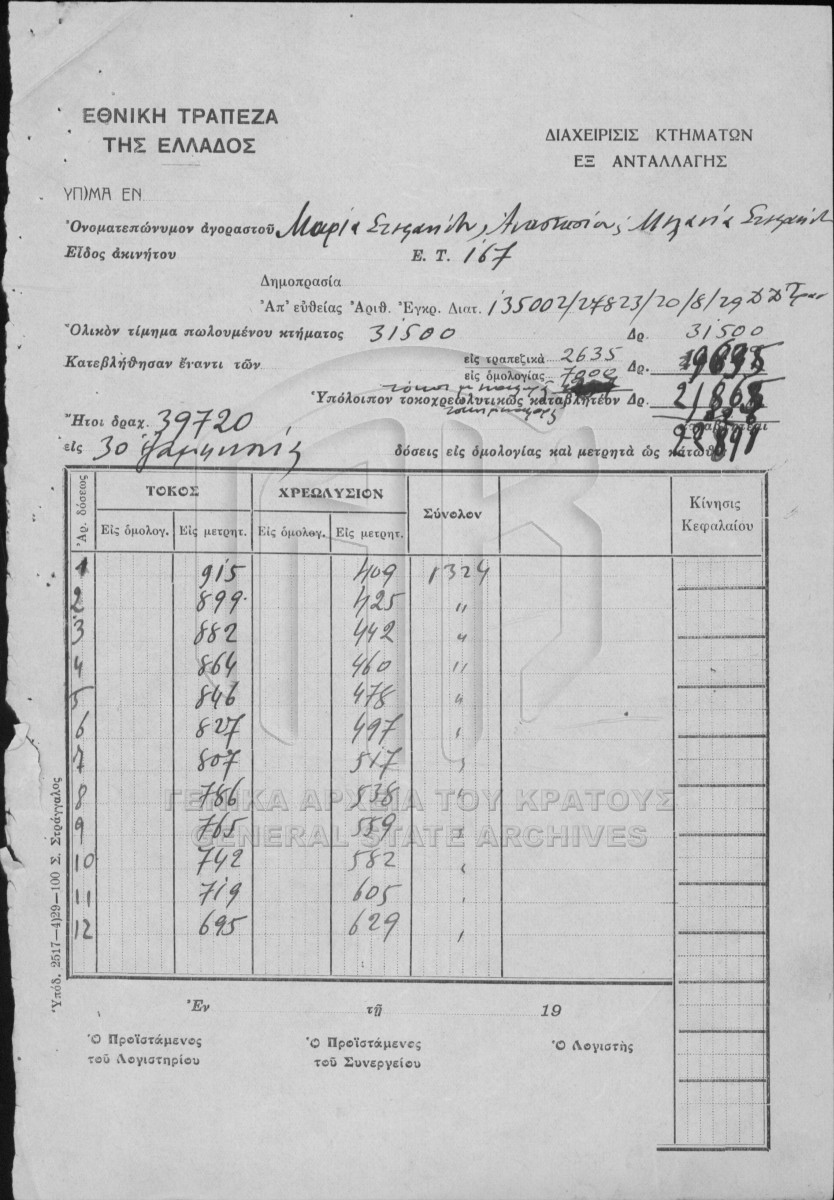 ΕΘΝΙΚΗ ΤΡΑΠΕΖΑ
ΤΗΣ ΕΛΛΑΔΟΣ
ΔΙΑΧΕΙΡΙΣΙΣ ΚΤΗΜΑΤΩΝ
ΕΞ ΑΝΤΑΛΛΑΓΗΣ
ΥΠ)ΜΑ ΕΝ
Ὀνοματεπώνυμον ἀγοραστοῦ Μαρία
Εἶδος ἀκινήτου Ε. Τ. 167
Δημοπρασία
Ἀπ' εὐθείας Ἀριθ. Ἐγκρ. Διατ. 135002/27823/20/8/29
Ὁλικὸν τίμημα πωλουμένου κτήματος 31500 Δρ. 31500
Κατεβλήθησαν ἔναντι τῶν εἰς τραπεζικὰ 2635 Δρ.
εἰς ὁμολογίας 7000
Ὑπόλοιπον τοκοχρεωλυτικῶς καταβλητέον Δρ.
Ἤτοι δραχ. 39720
εἰς 30 δόσεις εἰς ὁμολογίας καὶ μετρητὰ ὡς κάτωθι
Ἀρ. δόσεως ΤΟΚΟΣ ΧΡΕΩΛΥΣΙΟΝ Σύνολον Κίνησις Κεφαλαίου
Εἰς ὁμολογ. Εἰς μετρητ. Εἰς ὁμολογ. Εἰς μετρητ.
1 915 409 1324
2 899 425 "
3 882 442 "
4 864 460 "
5 846 478 "
6 827 497
7 807 517
8 786 538
9 765 559
10 742 582
11 719 605
12 695 629
ΓΕΝΙΚΑ ΑΡΧΕΙΑ ΤΟΥ ΚΡΑΤΟΥΣ
GENERAL STATE ARCHIVES
Ὑπόδ. 2517—4)29—100 Σ. Στράγγαλος
Ἐν τῇ 19
Ὁ Προϊστάμενος
τοῦ Λογιστηρίου
Ὁ Προϊστάμενος
τοῦ Συνεργείου
Ὁ Λογιστὴς